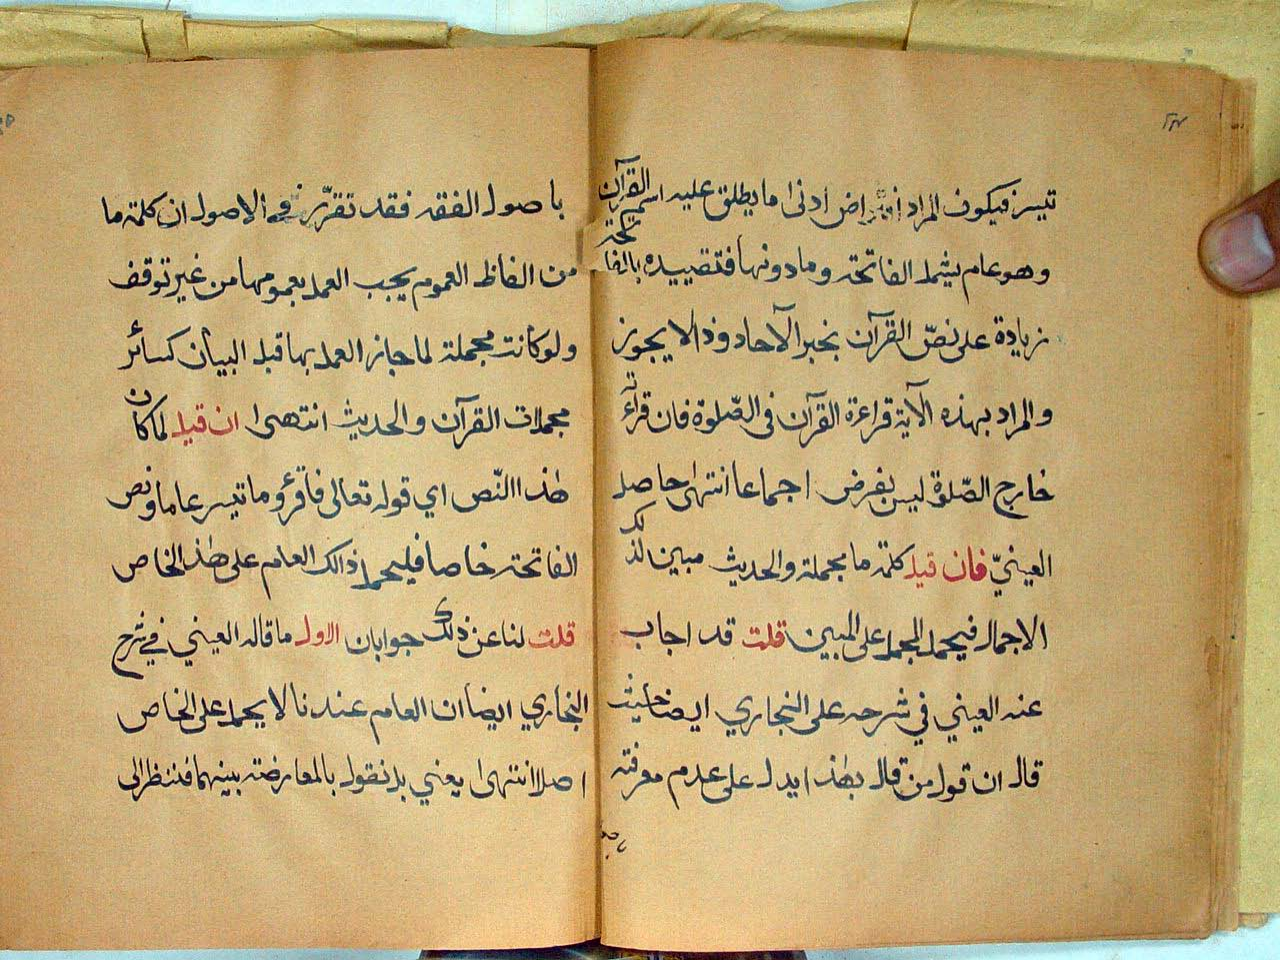 ٢٣٧
تيسر فيكون المراد افتراض ادنى ما يطلق عليه اسم القرآن
وهو عام يشمل الفاتحة وما دونها فتقييده بالفاتحة
زيادة على نصّ القرآن بخبر الآحاد وذا لا يجوز
والمراد بهذه الآية قراءة القرآن فى الصّلوة فان قراءته
خارج الصّلوة ليس بفرض اجماعا انتهى حاصل
العينيّ فان قيل كلمة ما مجملة والحديث مبين لذلك
الاجمال فيحمل المجمل على المبين قلت قد اجاب
عنه العيني في شرحه على البخاري ايضا حيث
قال ان قول من قال بهذا يدل على عدم معرفته
باصول الفقه فقد تقرّر في الاصول ان كلمة ما
من الفاظ العموم يجب العمل بعمومها من غير توقف
ولو كانت مجملة لما جاز العمل بها قبل البيان كسائر
مجملات القرآن والحديث انتهى ان قيل لما كان
هذا النّص اي قوله تعالى فاقرؤ وما تيسر عاما ونص
الفاتحة خاصا فليحمل ذالك العام على هذ الخاص
قلت لنا عن ذلك جوابان الاول ما قاله العيني في شرح
البخاري ايضا ان العام عندنا لا يحمل على الخاص
اصلا انتهى يعني بل نقول بالمعارضة بينهما فننظر الى